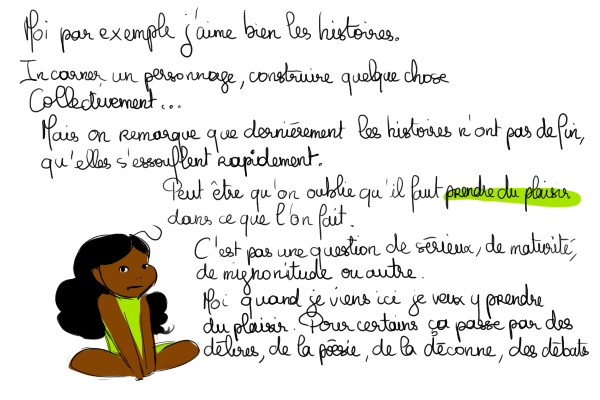 Moi par exemple j'aime bien les histoires.
Incarner un personnage, construire quelque chose
Collectivement...
Mais on remarque que dernièrement les histoires n'ont pas de fin,
qu'elles s'essoufflent rapidement.
Peut être qu'on oublie qu'il faut prendre du plaisir
dans ce que l'on fait.
C'est pas une question de sérieux, de maturité,
de mignonitude ou autre.
Moi quand je viens ici je veux y prendre
du plaisir. Pour certains ça passe par des
délires, de la poésie, de la déconne, des débats